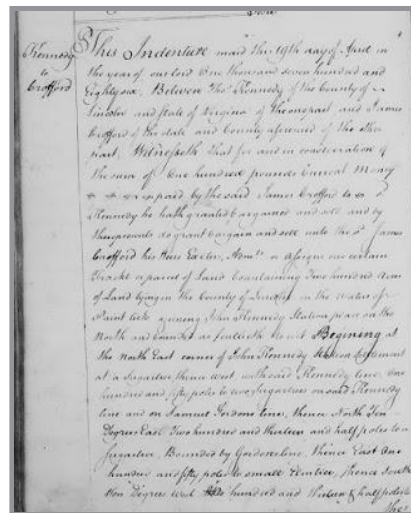 Kennedy
to
Crofford
This Indenture maid this 19th day of April in
the year of our lord One thousand seven hundred and
Eighty six, Between Thos Kennedy of the County of
Lincoln and State of Virginia of the one part and James
Crofford of the state and County aforesaid of the other
part, Witnesseth that for and in consideration of
the sum of One hundred pounds Current Money
paid by the said James Crofford to sd
Kennedy he hath granted bargained and sold and by
these presents do grant bargain and sell unto the sd James
Crofford his Heirs Exectrs, Admrs or Assigns one certain
Tract or parcel of Land Containing Two hundred Acres
of Land lying in the County of Lincoln in the Waters of
Paint lick joining John Kennedy Station place on the
North and bounded as followeth to wit Begining at
the North East corner of John Kennedy Settlement
at a Sugartree, thence West with said Kennedy line, One
hundred and fifty poles to two Sugartrees on said Kennedy
line and on Samuel Gordons line, thence North Ten
Degrees East Two hundred and thirteen and half poles to a
Sugartree, Bounded by Gordons line, thence East One
hundred and fifty poles to small thence South
Ten Degrees West Two hundred and thirteen & half poles to
the